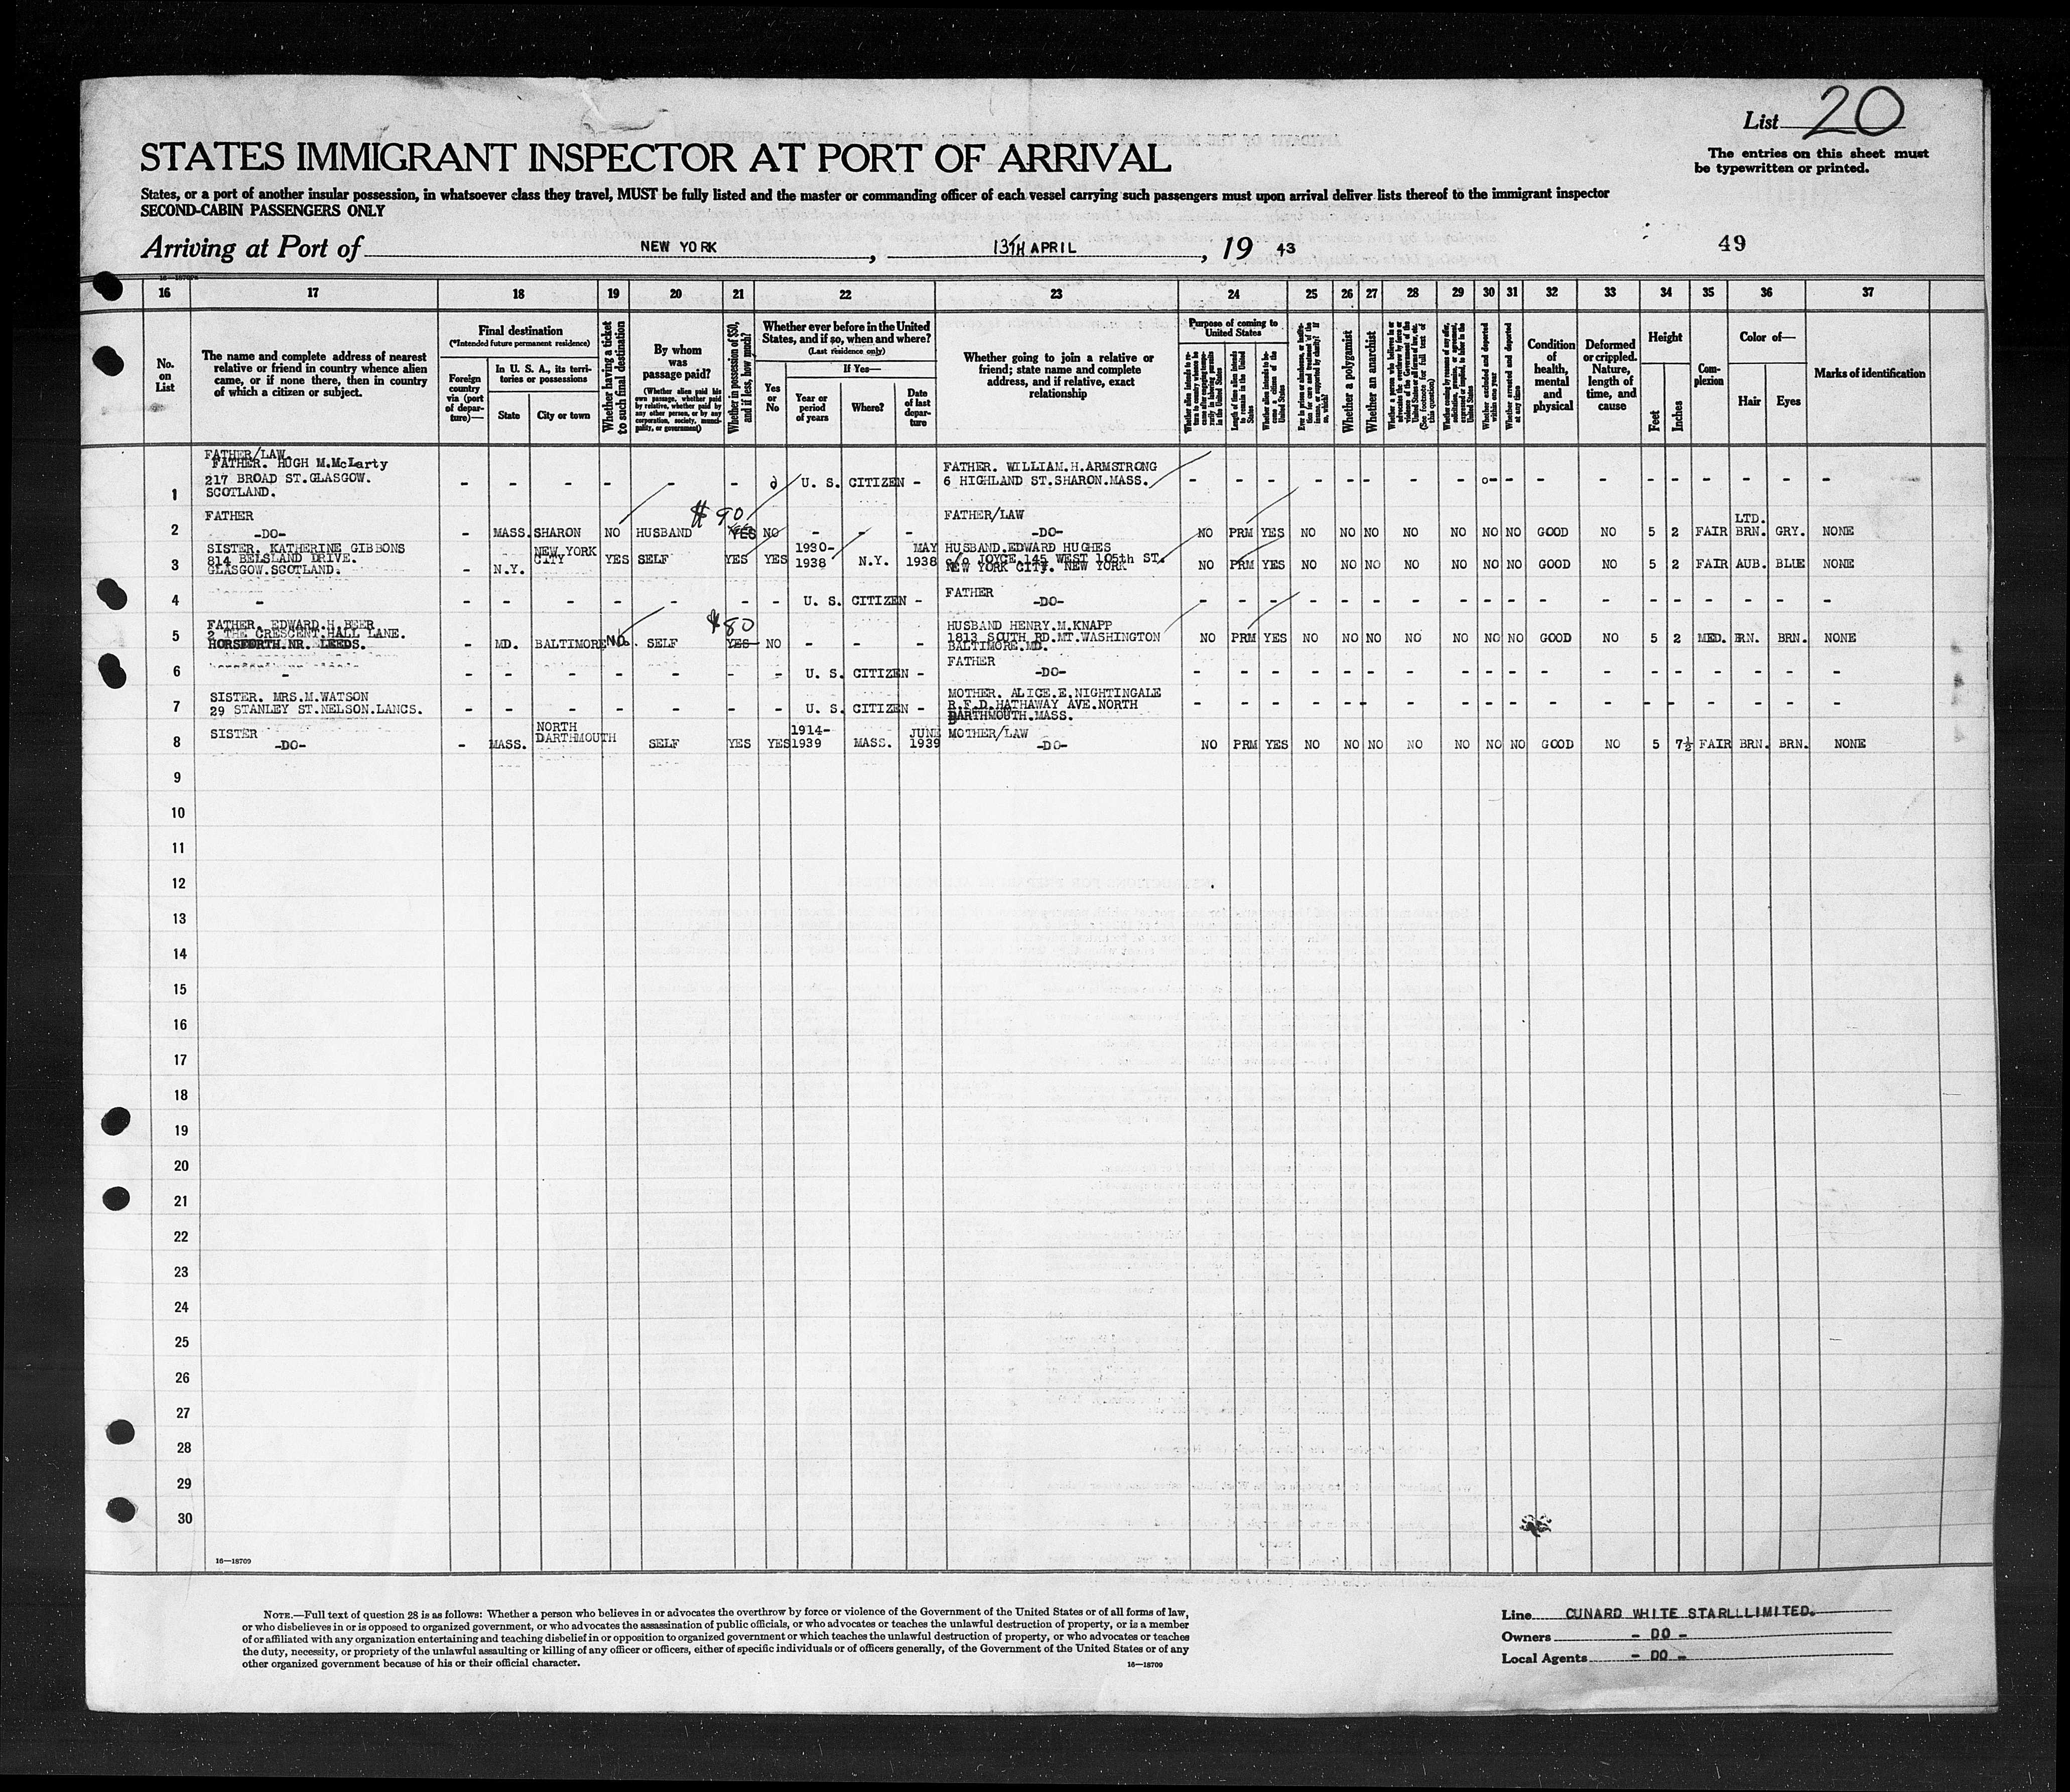 List 20
The entries on this sheet must
be typewritten or printed.
STATES IMMIGRANT INSPECTOR AT PORT OF ARRIVAL
States, or a port of another insular possession, in whatsoever class they travel, MUST be fully listed and the master or commanding officer of each vessel carrying such passengers must upon arrival deliver lists thereof to the immigrant inspector
SECOND-CABIN PASSENGERS ONLY
Arriving at Port of NEW YORK , 13TH APRIL , 19 43
49
16 17 18 19 20 21 22 23 24 25 26 27 28 29 30 31 32 33 34 35 36 37
No. on List
The name and complete address of nearest
relative or friend in country whence alien
came, or if none there, then in country
of which a citizen or subject.
Final destination
(*Intended future permanent residence)
Foreign country via (port of departure)—
In U. S. A., its territories or possessions
State
City or town
Whether having a ticket to such final destination
By whom was passage paid?
(Whether alien paid his own passage, whether paid by relative, whether paid by any other person, or by any corporation, society, municipality, or government)
Whether in possession of $50, and if less, how much?
Whether ever before in the United
States, and if so, when and where?
(Last residence only)
Yes or No
If Yes—
Year or period of years
Where?
Date of last departure
Whether going to join a relative or
friend; state name and complete
address, and if relative, exact
relationship
Purpose of coming to United States
Length of time alien intends to remain in the United States
Whether alien intends to become a citizen of the United States
Whether a polygamist
Whether an anarchist
Whether excluded and deported within one year
Whether arrested and deported at any time
Condition of health, mental and physical
Deformed or crippled. Nature, length of time, and cause
Height
Feet
Inches
Complexion
Color of—
Hair
Eyes
Marks of identification
1 FATHER/LAW
FATHER. HUGH M.McLarty
217 BROAD ST.GLASGOW.
SCOTLAND. - - - - - - U. S. CITIZEN - FATHER. WILLIAM.H.ARMSTRONG
6 HIGHLAND ST.SHARON.MASS. - - - - - - - - - - - - - - - - - -
2 FATHER
-DO- - MASS. SHARON NO HUSBAND $90 YES NO - - - FATHER/LAW
-DO- NO PRM YES NO NO NO NO NO NO NO GOOD NO 5 2 FAIR LTD. BRN. GRY. NONE
3 SISTER. KATHERINE GIBBONS
814 BELSLAND DRIVE.
GLASGOW.SCOTLAND. - N.Y. NEW YORK CITY YES SELF YES YES 1930-1938 N.Y. MAY 1938 HUSBAND.EDWARD HUGHES
c/o JOYCE.145 WEST 105th ST.
NEW YORK CITY. NEW YORK NO PRM YES NO NO NO NO NO NO NO GOOD NO 5 2 FAIR AUB. BLUE NONE
4 - - - - - - - - U. S. CITIZEN - FATHER
-DO- - - - - - - - - - - - - - - - - - -
5 FATHER. EDWARD.H.BEER
2 THE CRESCENT.HALL LANE.
HORSFORTH.NR. LEEDS. - MD. BALTIMORE NO. SELF $80 YES NO - - - HUSBAND HENRY.M.KNAPP
1813 SOUTH RD.MT.WASHINGTON
BALTIMORE.MD. NO PRM YES NO NO NO NO NO NO NO GOOD NO 5 2 MED. BRN. BRN. NONE
6 - - - - - - - - U. S. CITIZEN - FATHER
-DO- - - - - - - - - - - - - - - - - - -
7 SISTER. MRS.M.WATSON
29 STANLEY ST.NELSON.LANCS. - - - - - - - U. S. CITIZEN - MOTHER. ALICE.E.NIGHTINGALE
R.F.D.HATHAWAY AVE.NORTH
DARTHMOUTH.MASS. - - - - - - - - - - - - - - - - - -
8 SISTER
-DO- - MASS. NORTH DARTHMOUTH SELF YES YES 1914-1939 MASS. JUNE 1939 MOTHER/LAW
-DO- NO PRM YES NO NO NO NO NO NO NO GOOD NO 5 7½ FAIR BRN. BRN. NONE
9
10
11
12
13
14
15
16
17
18
19
20
21
22
23
24
25
26
27
28
29
30
16—18709
NOTE.—Full text of question 28 is as follows: Whether a person who believes in or advocates the overthrow by force or violence of the Government of the United States or of all forms of law,
or who disbelieves in or is opposed to organized government, or who advocates the assassination of public officials, or who advocates or teaches the unlawful destruction of property, or is a member
of or affiliated with any organization entertaining and teaching disbelief in or opposition to organized government or which teaches the unlawful destruction of property, or who advocates or teaches
the duty, necessity, or propriety of the unlawful assaulting or killing of any officer or officers, either of specific individuals or of officers generally, of the Government of the United States or of any
other organized government because of his or their official character.
16—18709
Line CUNARD WHITE STARLLLIMITED.
Owners - DO -
Local Agents - DO -